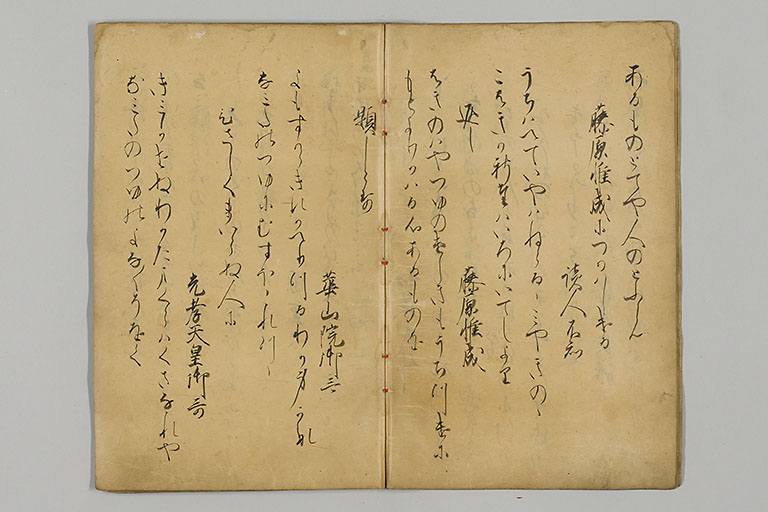 あるものとてや人のとふらん
藤原惟成につかはしける
読人不知
うちはへていやはねらるゝみやきのゝ
こはきか葉いろにいてしより
返し
藤原惟成
はきのはやつゆのけしきもうちつけに
もとよりかはる心あるものを
題しらす
華山院御哥
よもすからきえかへりつるわか身かな
なみたのつゆにむすほゝれつゝ
ひさしくまいらぬ人に
光孝天皇御哥
きみかせぬわかたまくらはくさなれや
なみたのつゆのよなよなそをく